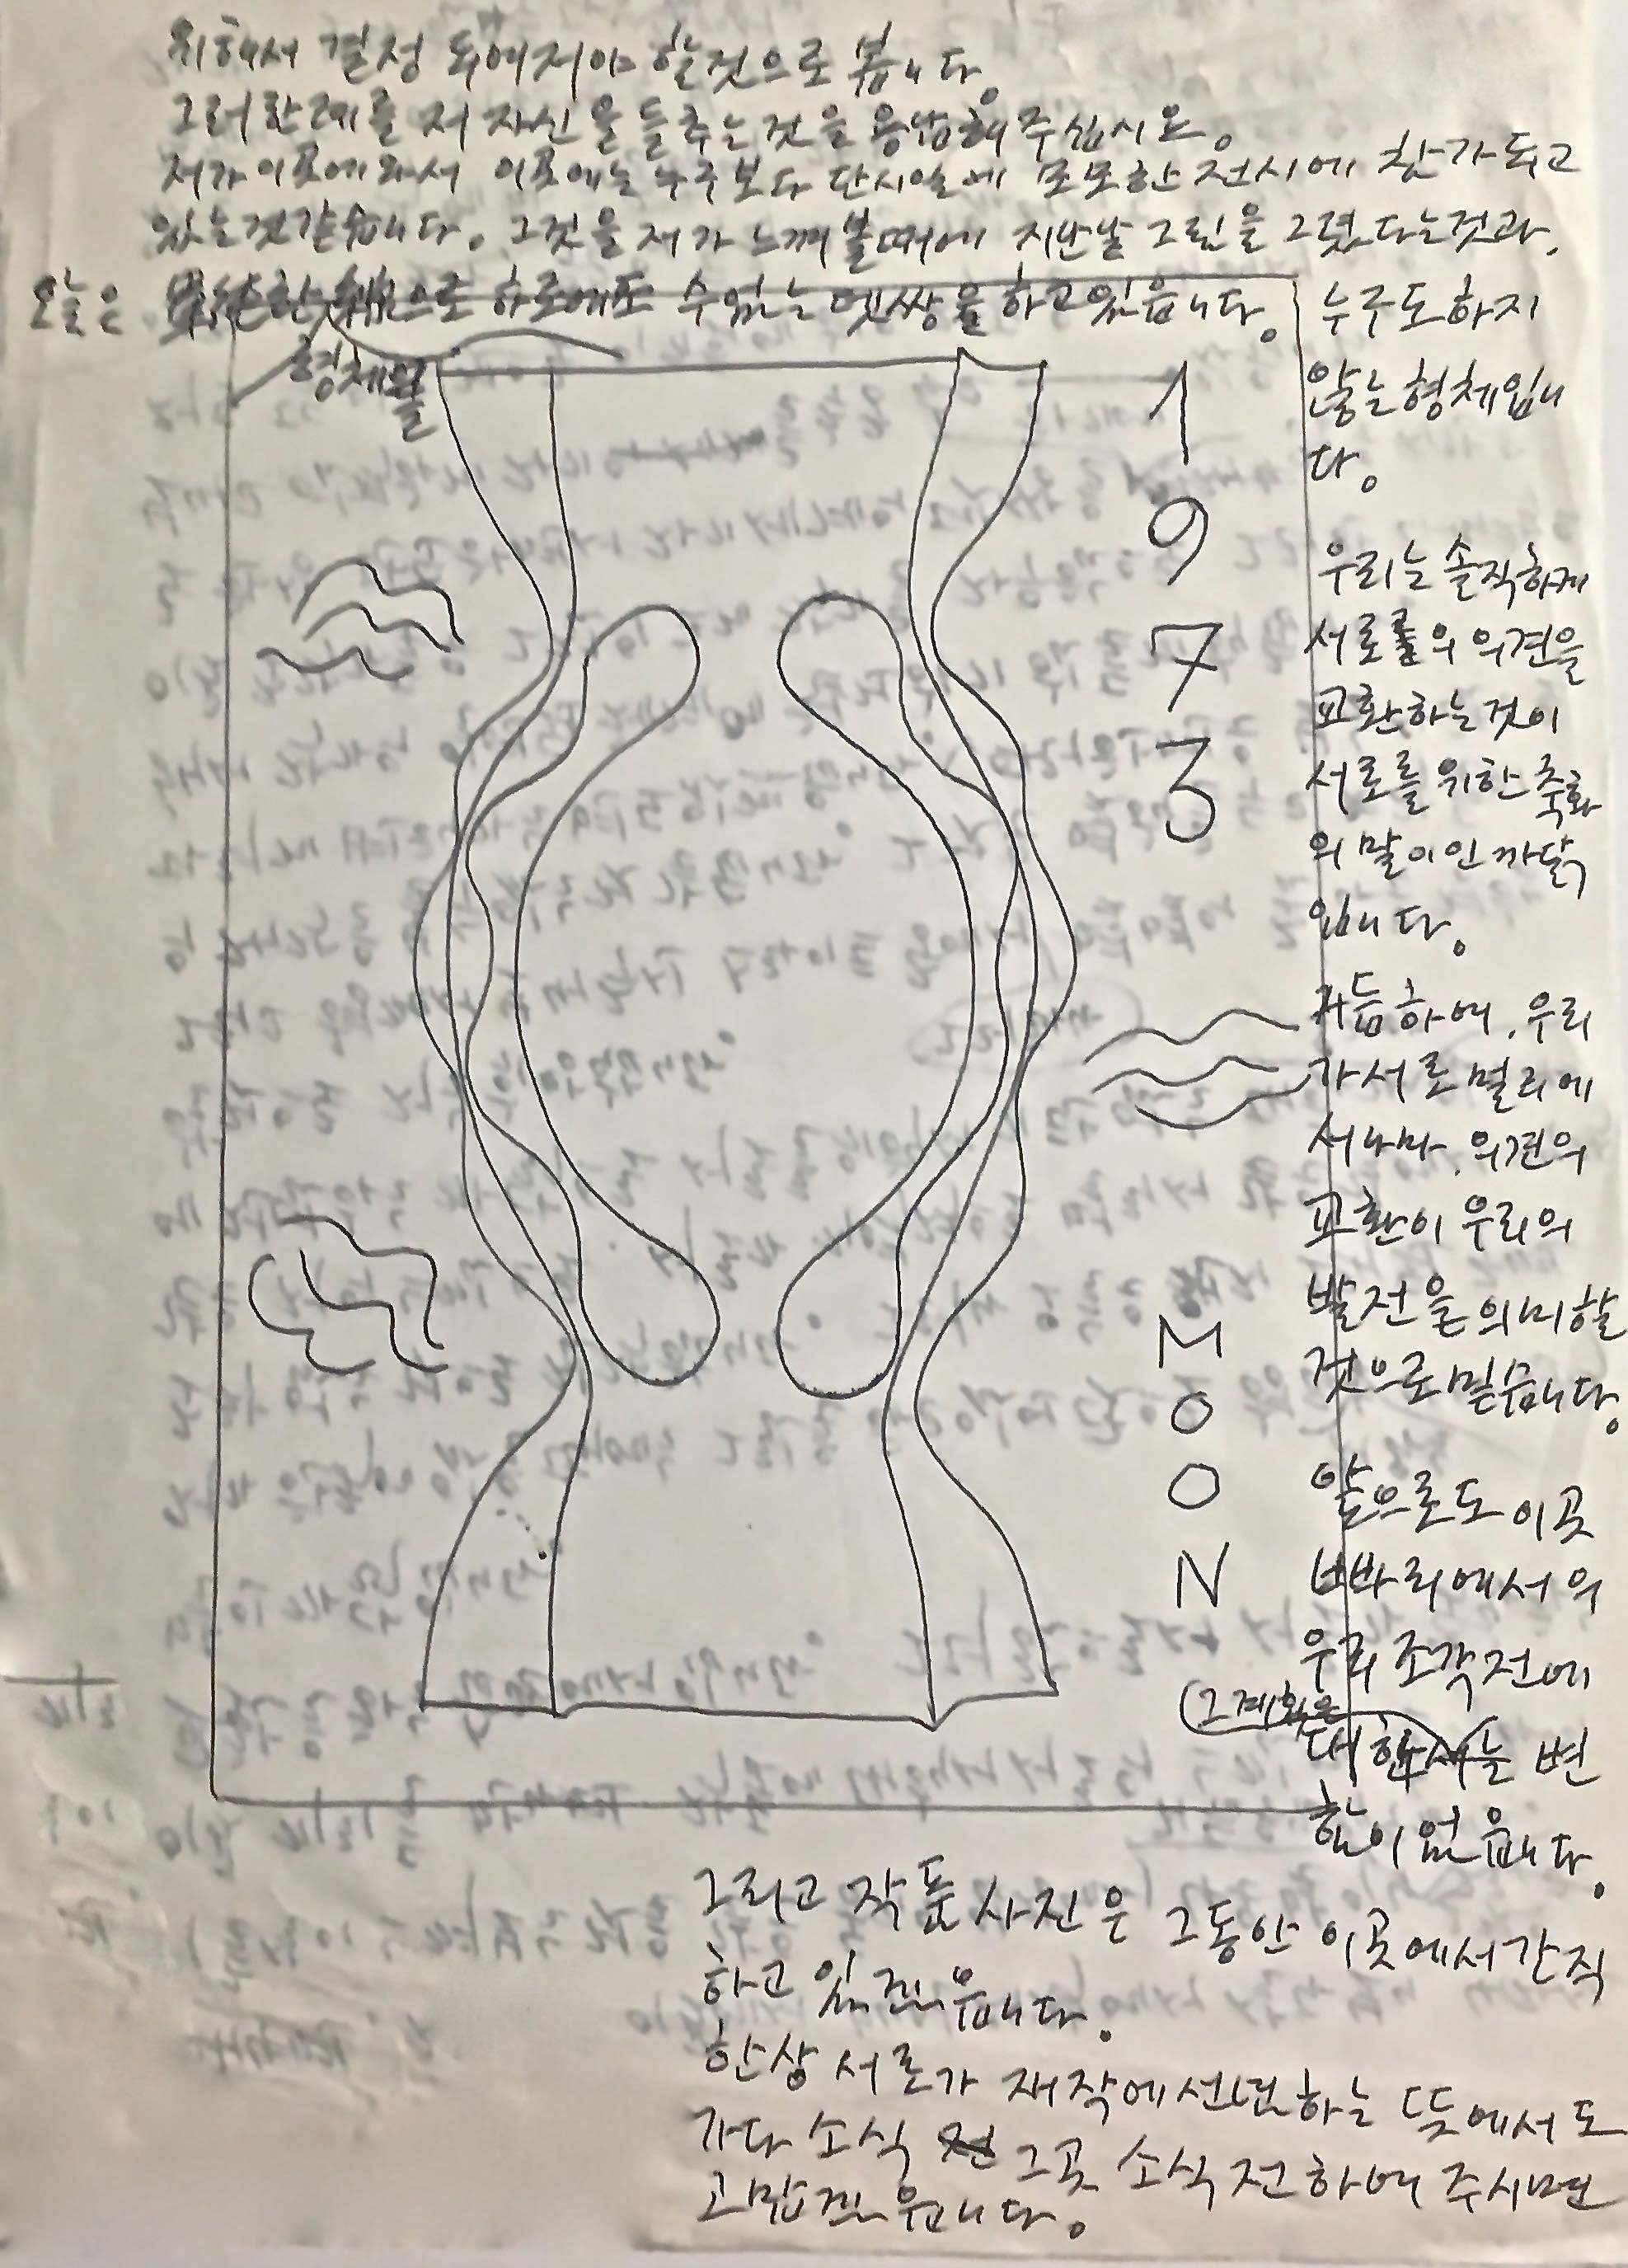 위해서 결정 되에저야 할것으로 봅니다.
그러한 예를 저 자신을 들추는것을 용납해 주십시요.
저가 이곳에 와서 이곳에는 누구보다 단시일에 모모한 전시에 참가 되고
있는것 같습니다. 그것을 제가 느껴볼때에 지난날 그림을 그렸다는것과,
오늘은 으로 하로에도 수없는 뎃쌍을 하고 있읍니다. 누구도 하지
형체를
않는 형체입니
다.
1
9
7
3
우리는 솔직하게
서로를의 의견을
교환하는것이
서로를 위한 축화
의 말이인 까닭
입니다.
거듭하여, 우리
가 서로 멀리에
서나마, 의견의
교환이 우리의
발전을 의미할
것으로 믿습니다.
M
O
O
N
앞으로도 이곳
너바리에서의
우리 조각전에
(그 계획은
대한 서는 변
함이 없읍니다.
그리고 작품 사진은 그동안 이곳에서 간직
하고 있겠읍니다.
한상 서로가 재작에 선념하는 뜻에서도
가다 소식 전 그곳 소식 전하여 주시면
고맙겠읍니다.